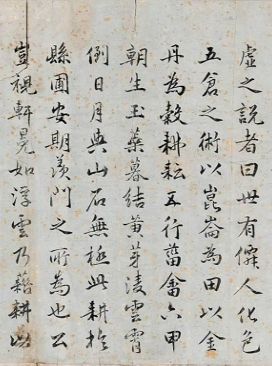 虛之説者曰世有僊人化色
五倉之術以崑崙為田以金
丹為穀耕耘五行菑畬六甲
朝生玉蘂暮結黄芽淩雲霄
倒日月與山石無極此耕於
縣圃安期羡門之所為也公
豈視軒冕如浮雲乃藉耕